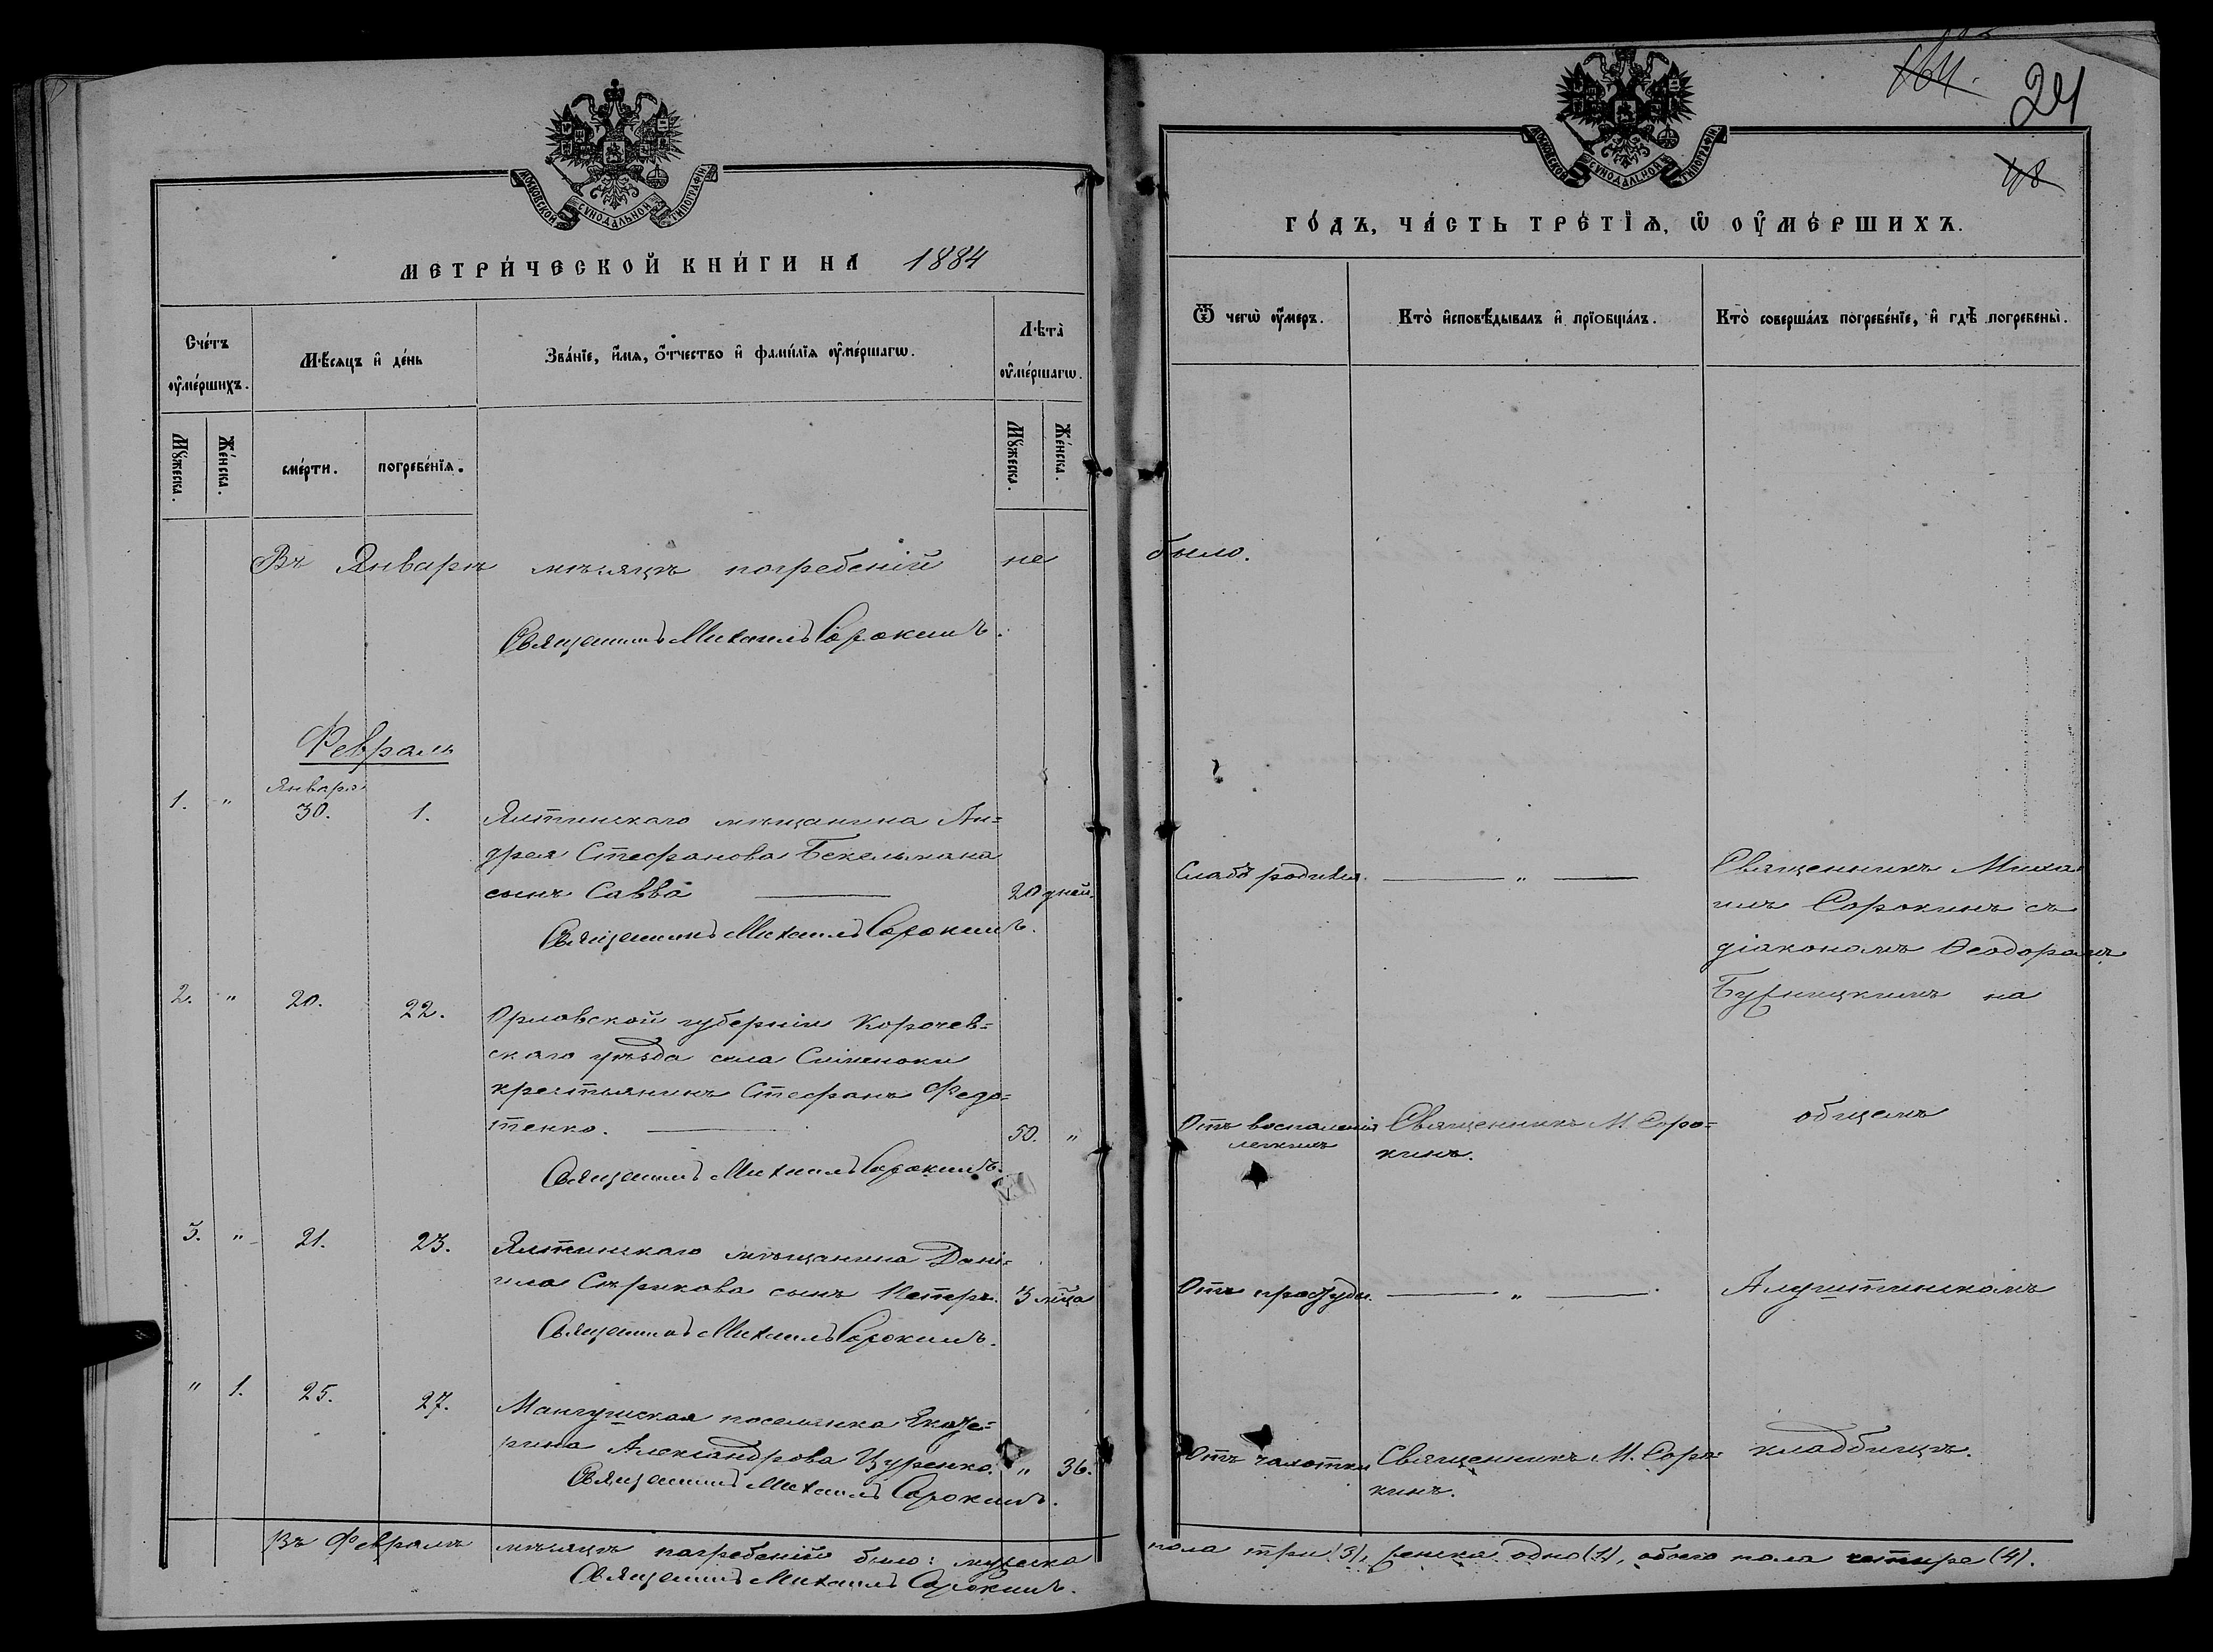 МОСКОВСКОЙ СѴНОДАЛЬНОЙ ТИПОГРАФІИ
МЕТРИ́ЧЕСКОЙ КНИ́ГИ НА 1884
Сче́тъ ᲂу҆ме́ршихъ.
Мѣ́сяцъ и҆ де́нь
Зва́нїе, и҆́мѧ, ѻ҆́тчество и҆ фами́лїѧ ᲂу҆ме́ршагѡ.
Лѣта̀ ᲂу҆ме́ршагѡ.
Мꙋ́жеска.
Же́нска.
сме́рти.
погребе́нїѧ.
Мꙋ́жеска.
Же́нска.
Въ Январѣ мѣсяцѣ погребеній не
Священникъ Михаилъ Сорокинъ.
Февраль
Января
1. " 30. 1. Ялтинскаго мѣщанина Ан=
дрея Стефанова Бекельмана
сынъ Савва 20 дней.
Священникъ Михаилъ Сорокинъ.
2. " 20. 22. Орловской губерніи Корочев=
скаго уѣзда села
крестьянинъ Стефанъ Федо=
тенко. 50. "
Священникъ Михаилъ Сорокинъ.
3. " 21. 23. Ялтинскаго мѣщанина Дані=
ила Сѣрикова сынъ Петръ. 3 мца
Священникъ Михаилъ Сорокинъ.
" 1. 25. 27. Мангушская поселянка Екате=
рина Александрова Цуренко. " 36.
Священникъ Михаилъ Сорокинъ.
Въ Февралѣ мѣсяцѣ погребеній было: мужеска
Священникъ Михаилъ Сорокинъ.
164.
24
48
МОСКОВСКОЙ СѴНОДАЛЬНОЙ ТИПОГРАФІИ
ГО́ДЪ, ЧА́СТЬ ТРЕ́ТЇѦ, Ѡ҆ ОУ҆МЕ́РШИХЪ.
Ѿ чегѡ̀ ᲂу҆́меръ.
Кто̀ и҆сповѣ́дывалъ и҆ прїѡбща́лъ.
Кто̀ соверша́лъ погребе́нїе, и҆ гдѣ̀ погребены̀.
было.
Слабъ родился. "
Священникъ Миха
илъ Сорокинъ съ
діакономъ Ѳеодоромъ
на
Отъ воспаленія
легкихъ
Священникъ М. Соро=
кинъ.
общемъ
Отъ простуды. "
Алуштинскомъ
Отъ чахотки
Священникъ М. Соро=
кинъ.
кладбищѣ.
пола три (3), женска одно (1), обоего пола четыре (4).